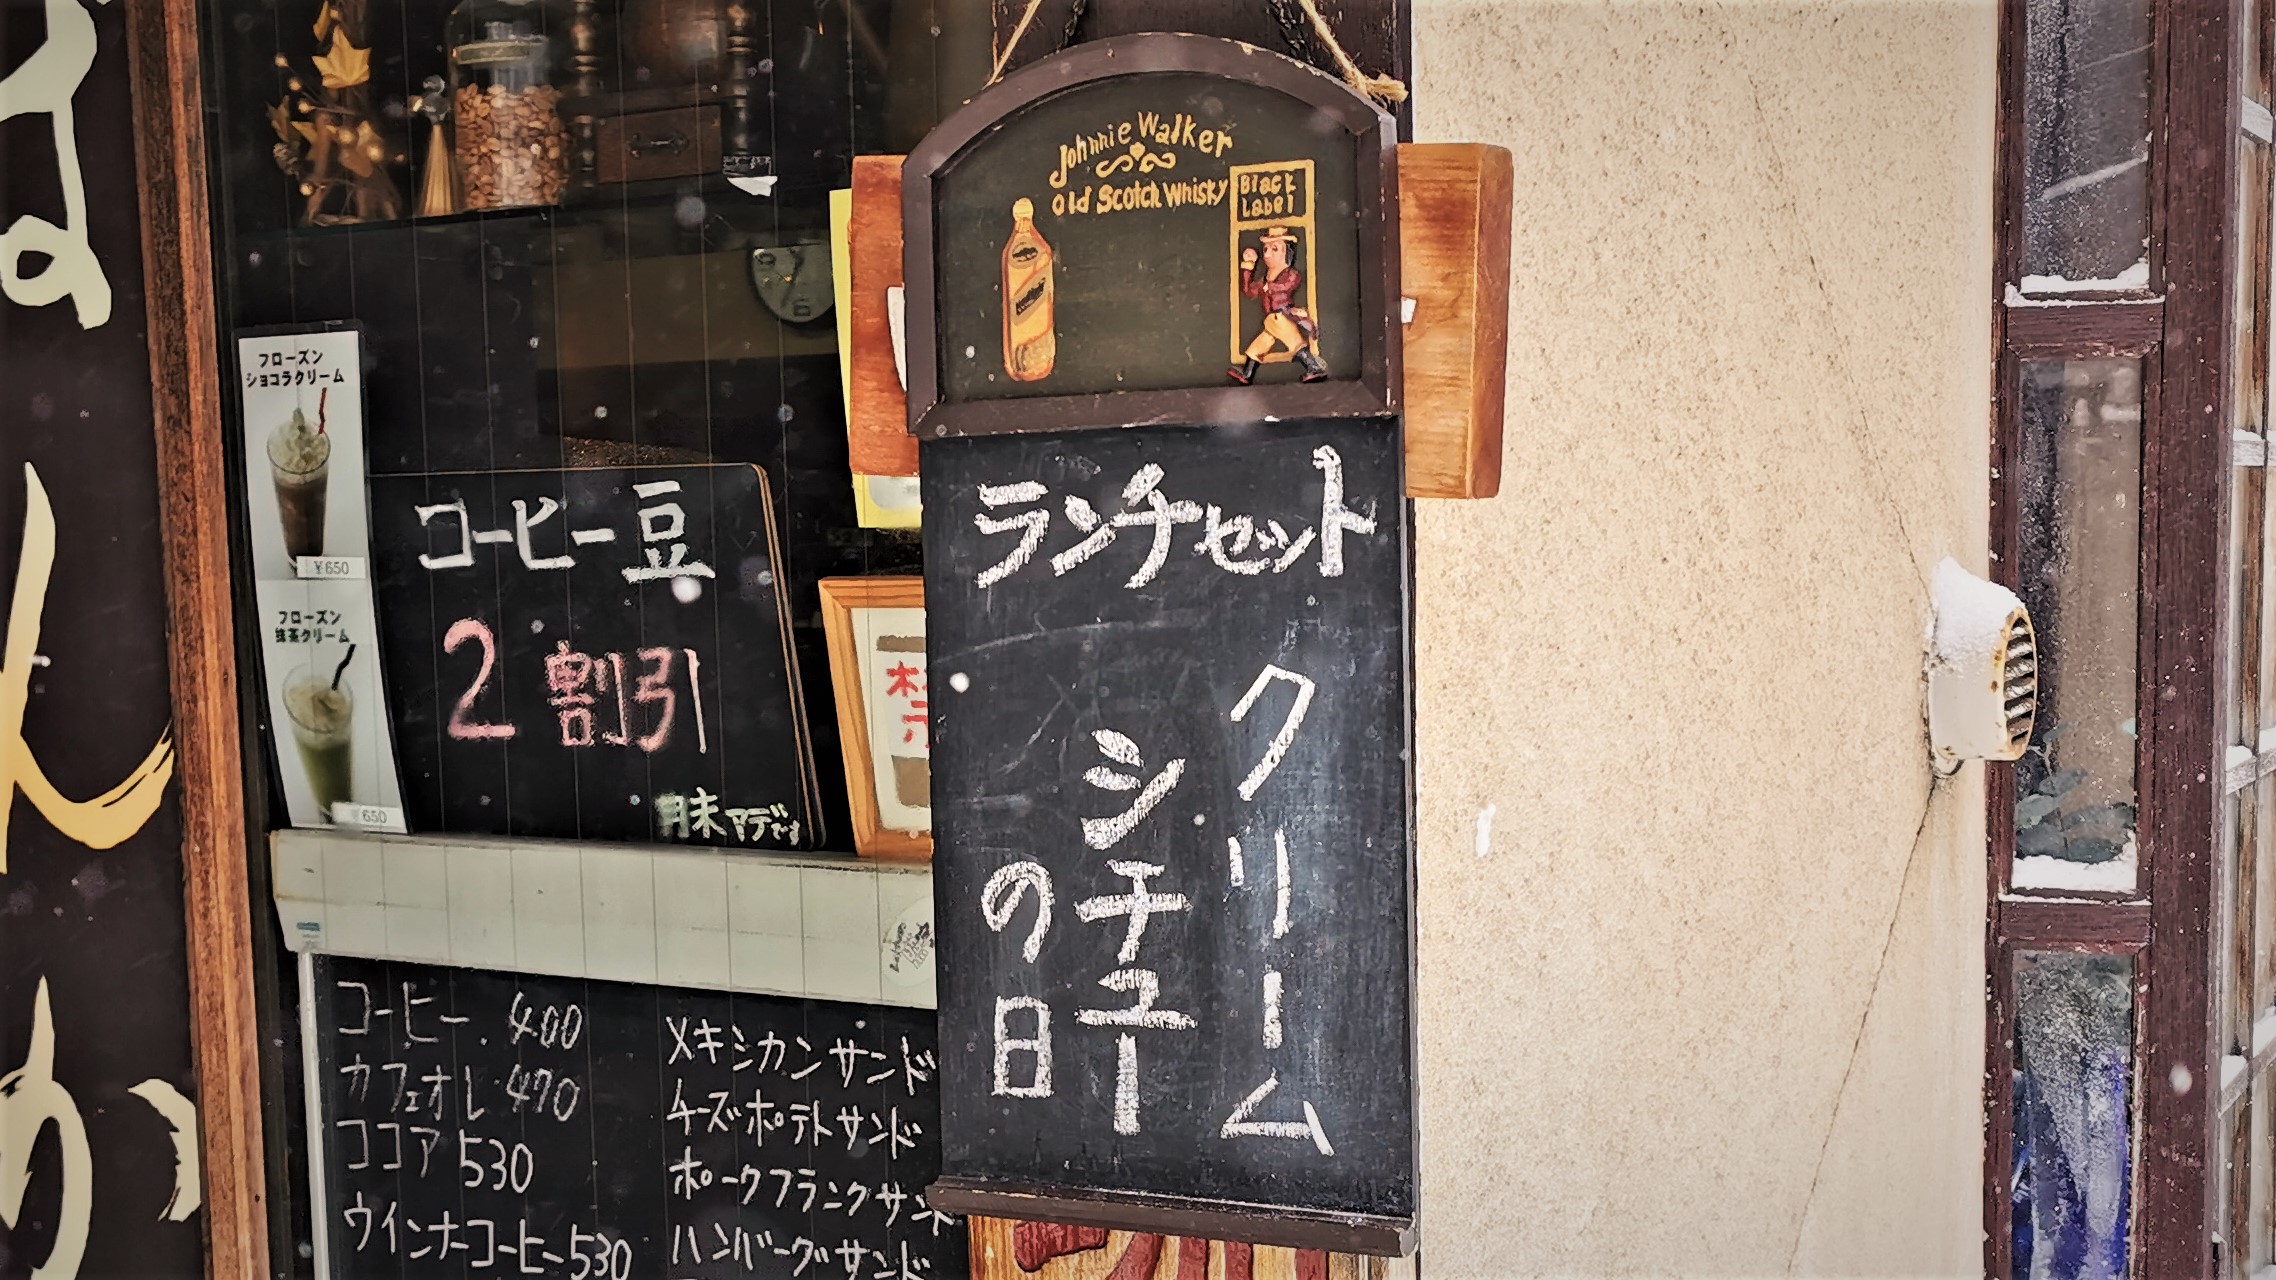 Johnnie Walker
Old Scotch Whisky
Black
Label
ランチセット
クリーム
シチュー
の日
フローズン
ショコラクリーム
¥650
フローズン
抹茶クリーム
¥650
コーヒー豆
2割引
月末マデです
コーヒー. 400
カフェオレ 470
ココア 530
ウインナーコーヒー 530
メキシカンサンド
チーズポテトサンド
ポークフランクサンド
ハンバーグサンド